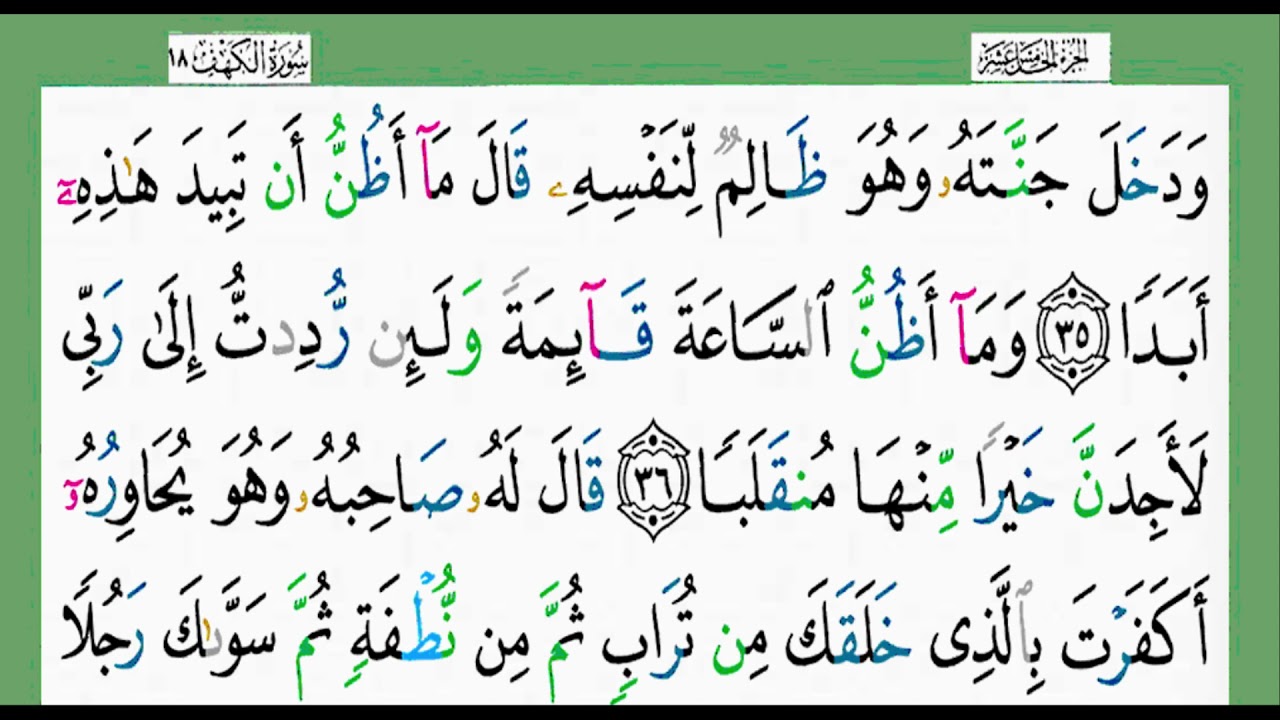 الجزء الخامس عشر
سورة الكهف ١٨
وَدَخَلَ جَنَّتَهُۥ وَهُوَ ظَالِمٌ لِّنَفْسِهِۦ قَالَ مَآ أَظُنُّ أَن تَبِيدَ هَـٰذِهِۦٓ
أَبَدًا ٣٥ وَمَآ أَظُنُّ ٱلسَّاعَةَ قَآئِمَةً وَلَئِن رُّدِدتُّ إِلَىٰ رَبِّى
لَأَجِدَنَّ خَيْرًا مِّنْهَا مُنقَلَبًا ٣٦ قَالَ لَهُۥ صَاحِبُهُۥ وَهُوَ يُحَاوِرُهُۥٓ
أَكَفَرْتَ بِٱلَّذِى خَلَقَكَ مِن تُرَابٍ ثُمَّ مِن نُّطْفَةٍ ثُمَّ سَوَّىٰكَ رَجُلًا